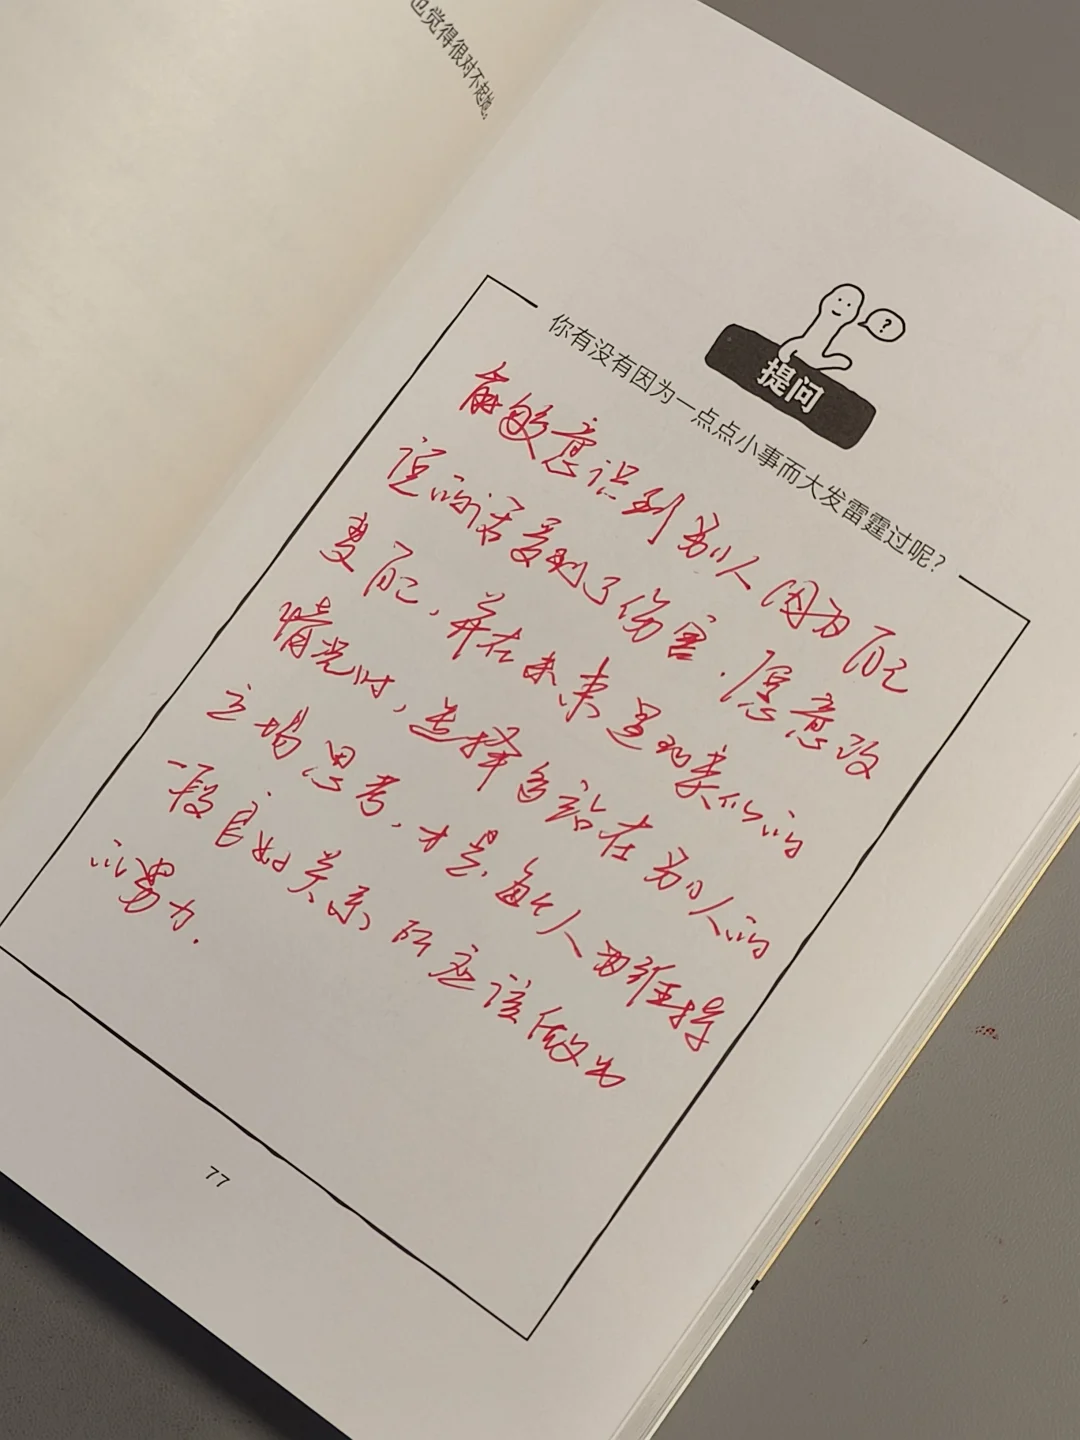 也觉得很对不起她，
?
提问
你有没有因为一点点小事而大发雷霆过呢？
能够意识到别人因为自己
说的话受到了伤害，愿意改
变自己，并在未来遇到类似的
情况时，选择多站在别人的
立场思考，才是每个人为维持
一段良好关系所应该做出
的努力.
77